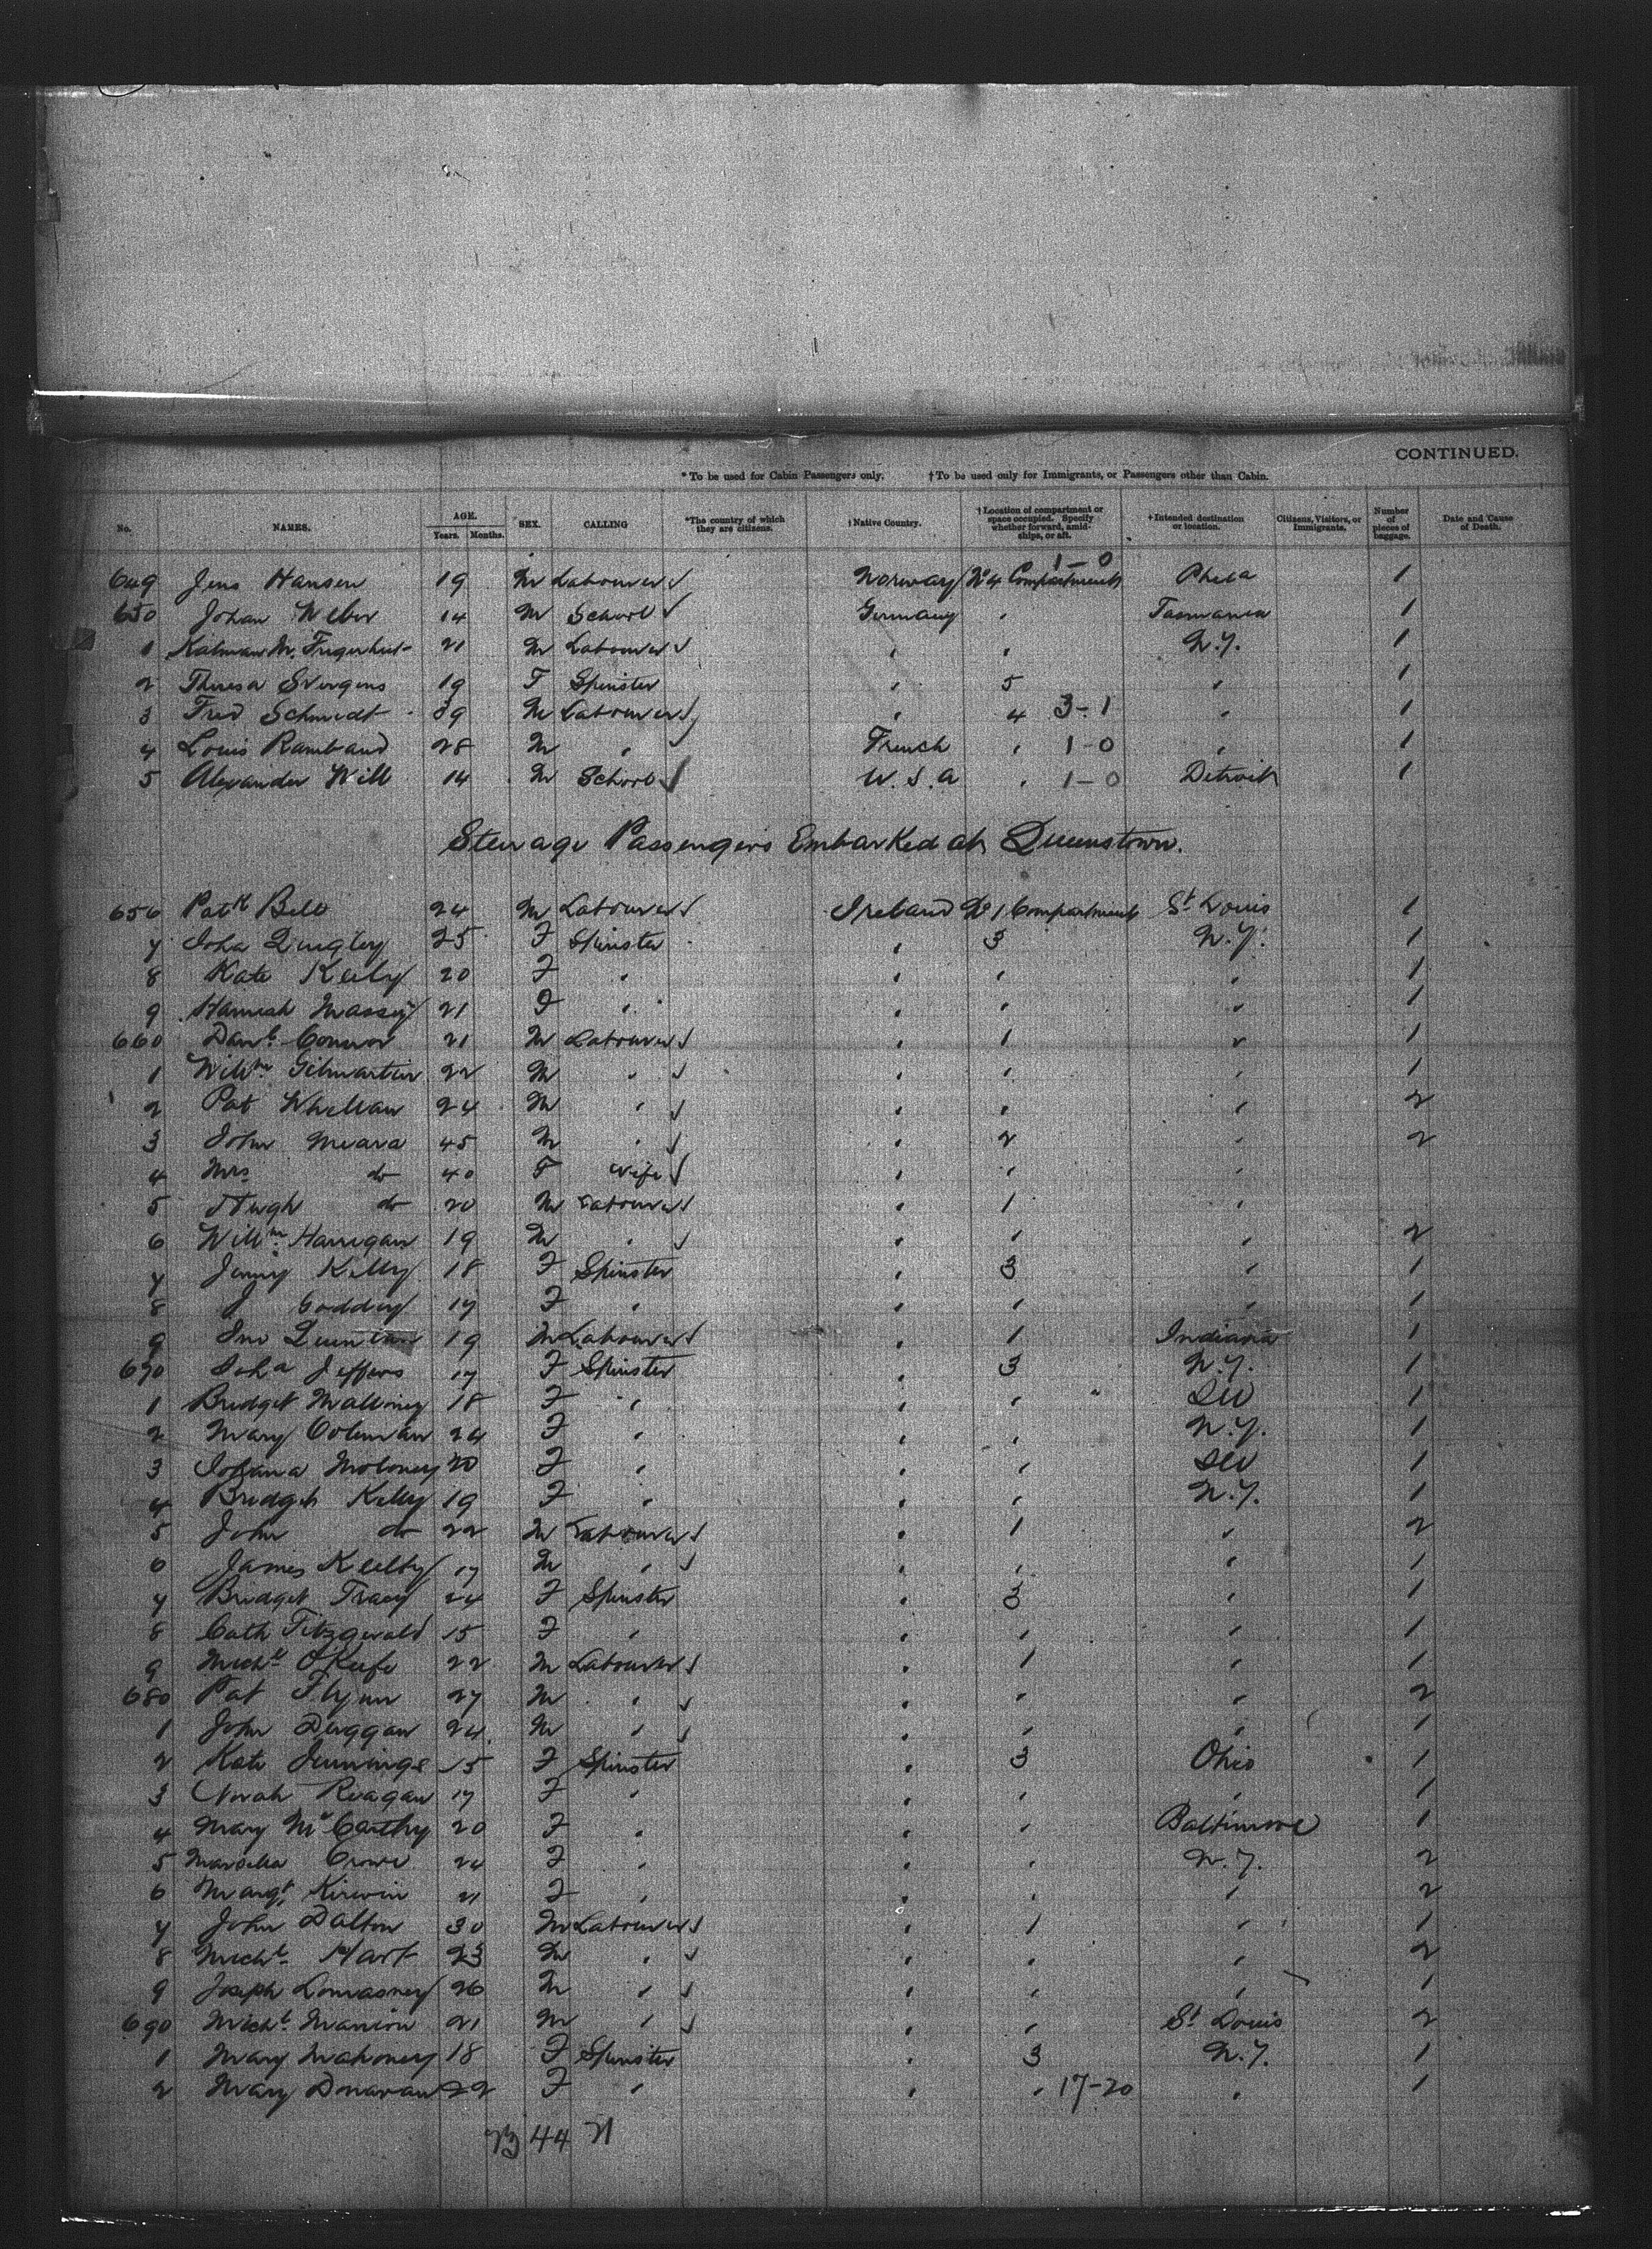 CONTINUED.
* To be used for Cabin Passengers only. † To be used only for Immigrants, or Passengers other than Cabin.
No. NAMES. AGE. Years. Months. SEX. CALLING *The country of which they are citizens. †Native Country. †Location of compartment or space occupied. Specify whether forward, amidships, or aft. †Intended destination or location. Citizens, Visitors, or Immigrants. Number of pieces of baggage. Date and Cause of Death.
1-0
649 Jens Hansen 19 M Labourer Norway No 4 Compartment Phila 1
650 Johan Weber 14 M School Germany " Tasmania 1
1 Kalman M. 21 M Labourer " " N.Y. 1
2 Theresa 19 F Spinster " 5 " 1
3 Fred Schmidt 39 M Labourer " 4 3-1 " 1
4 Louis Rambaud 28 M " French " 1-0 " 1
5 Alexander Will 14 M School U.S.A " 1-0 Detroit 1
Steerage Passengers Embarked at Queenstown.
656 Patk Bell 24 M Labourer Ireland No 1 Compartment St Louis 1
7 Joha Quigley 25 F Spinster " 3 N.Y. 1
8 Kate Keily 20 F " " " " 1
9 Hannah Massey 21 F " " " " 1
660 Danl Connor 21 M Labourer " 1 " 1
1 Willm Gilmartin 22 M " " " " 1
2 Pat Whelan 24 M " " " " 2
3 John Meara 45 M " " 2 " 2
4 Mrs do 40 F Wife " " "
5 Hugh do 20 M Labourer " 1 "
6 Willm Harrigan 19 M " " " " 2
7 Jenny Kelly 18 F Spinster " 3 " 1
8 J Goddey 17 F " " " " 1
9 Jno Quinlan 19 M Labourer " 1 Indiana 1
670 Joha Jeffers 17 F Spinster " 3 N.Y. 1
1 Bridget Malloney 18 F " " " 1
2 Mary Coleman 24 F " " " N.Y. 1
3 Johana Moloney 20 F " " " 1
4 Bridget Kelly 19 F " " " N.Y. 1
5 John do 22 M Labourer " 1 " 2
6 James Keelty 17 M " " " " 1
7 Bridget Tracy 24 F Spinster " 3 " 1
8 Cath Fitzgerald 15 F " " " " 1
9 Michl O'Keefe 22 M Labourer " 1 " 1
680 Pat Flynn 27 M " " " " 2
1 John Duggan 24 M " " " " 1
2 Kate Jennings 15 F Spinster " 3 Ohio 1
3 Norah Reagan 17 F " " " " 1
4 Mary McCarthy 20 F " " " Baltimore 1
5 Marsella Crowe 24 F " " " N.Y. 2
6 Margt Kirwin 21 F " " " " 2
7 John Dalton 30 M Labourer " 1 " 1
8 Michl Hart 23 M " " " " 2
9 Joseph Lomasney 26 M " " " " 1
690 Michl Mannion 21 M " " " St Louis 2
1 Mary Mahoney 18 F Spinster " 3 N.Y. 1
2 Mary Donavan 22 F " " " 17-20 " 1
23 44 21